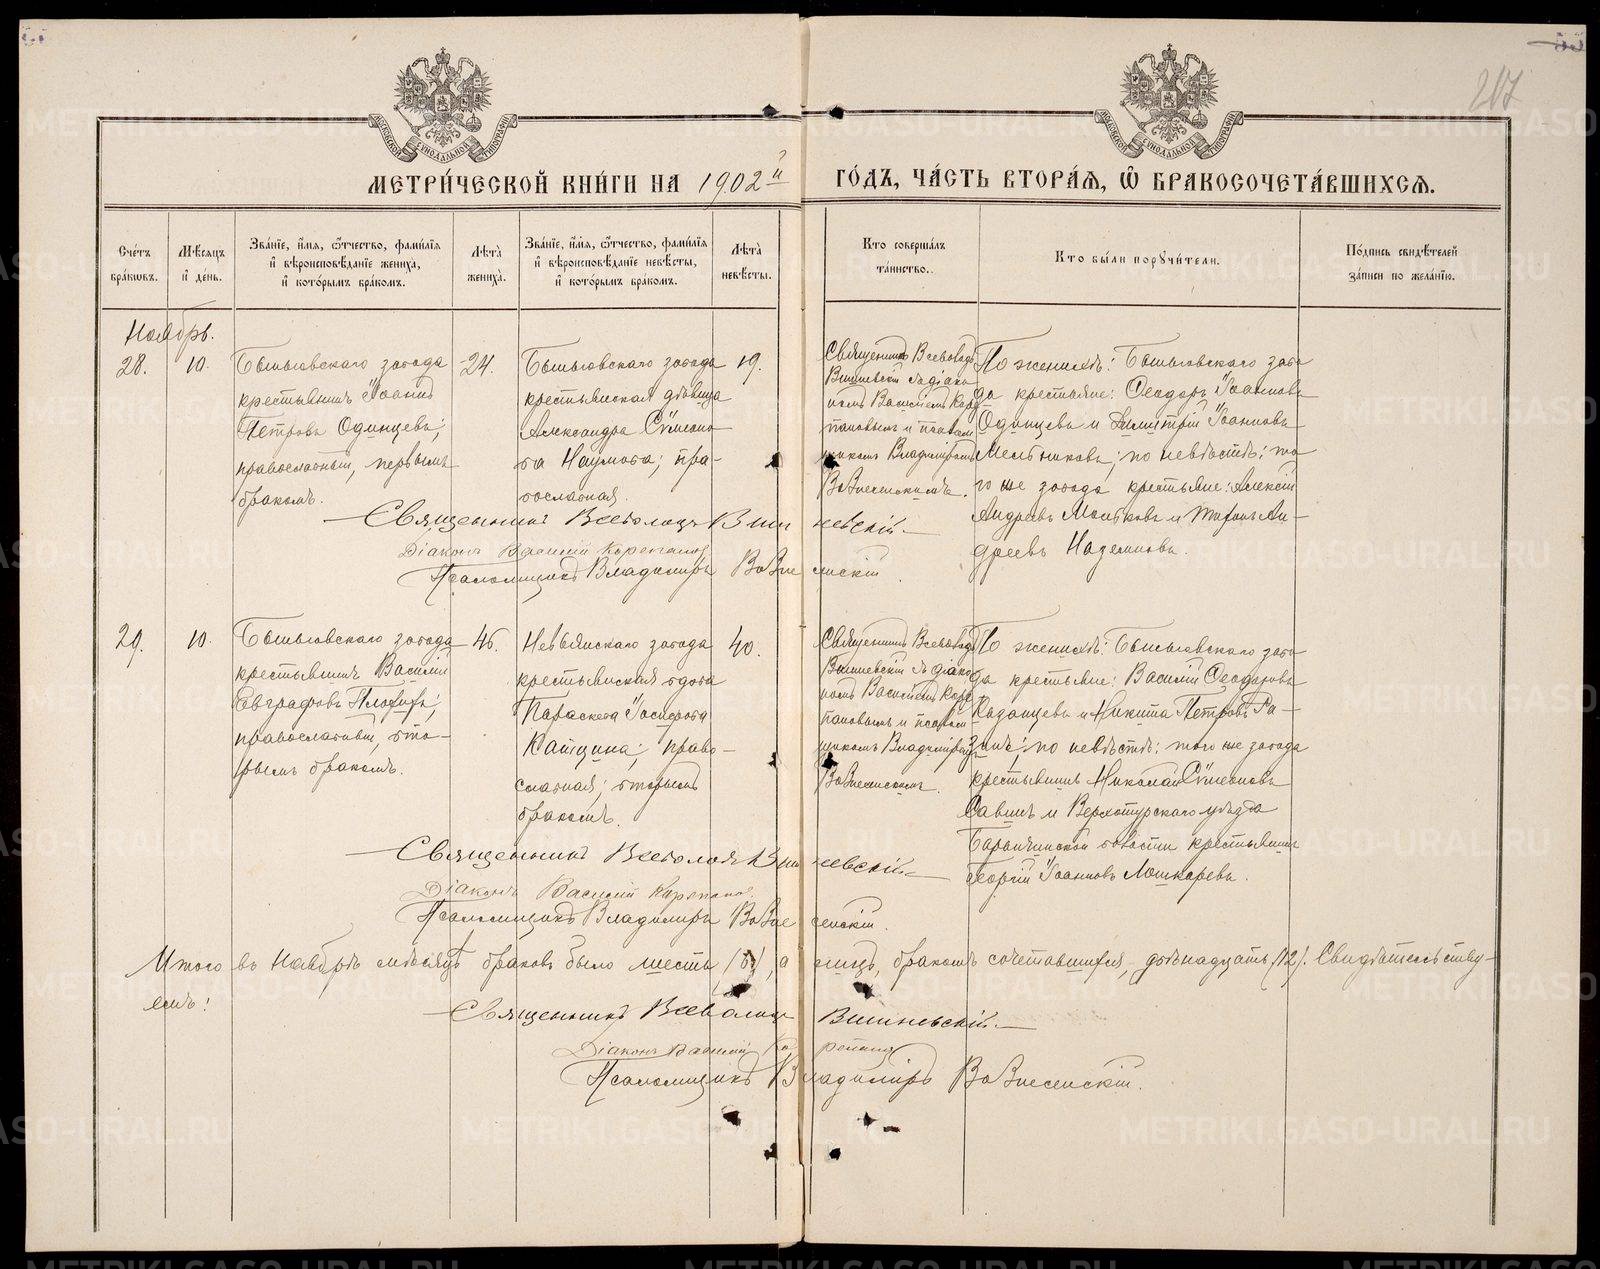 217
МОСКОВСКОЙ СѴНОДАЛЬНОЙ ТИПОГРАФІИ
МОСКОВСКОЙ СѴНОДАЛЬНОЙ ТИПОГРАФІИ
МЕТРИ́ЧЕСКОЙ КНИ́ГИ НА 1902й ГО́ДЪ, ЧА́СТЬ ВТОРА́Я, Ѽ БРАКОСОЧЕТА́ВШИХСЯ.
Сче́тъ
бра́ковъ.
Мѣ́сяцъ
и҆ де́нь.
Зва́нїе, и҆́мя, ѻ҆́тчество, фами́лїя
и҆ вѣроисповѣ́данїе жениха̀,
и҆ кото́рымъ бра́комъ.
Лѣ́та
жениха̀.
Зва́нїе, и҆́мя, ѻ҆́тчество, фами́лїя
и҆ вѣроисповѣ́данїе невѣ́сты,
и҆ кото́рымъ бра́комъ.
Лѣ́та
невѣ́сты.
Кто̀ соверша́лъ
та́инство.
Кто̀ бы́ли порꙋчи́тели.
По́дпись свидѣ́телей
за́писи по жела́нїю.
Ноябрь.
28.
10.
Быньговскаго завода
крестьянинъ Іоаннъ
Петровъ Одинцевъ;
православный, первымъ
бракомъ.
24.
Быньговскаго завода
крестьянская дѣвица
Александра Сѵмеоно-
ва Наумова; пра-
вославная.
19.
Священникъ Всеволодъ
Вишневскій съ діако-
номъ Василіемъ Коре-
пановымъ и псалом-
щикомъ Владиміромъ
Вознесенскимъ.
По женихѣ: Быньговскаго заво-
да крестьяне: Ѳеодоръ Іоанновъ
Одинцевъ и Димитрій Іоанновъ
Мельниковъ; по невѣстѣ: то-
го же завода крестьяне: Алексій
Андреевъ
и
Ан-
дреевъ
Священникъ Всеволодъ Вишневскій.
Діаконъ Василій Корепановъ
Псаломщикъ Владиміръ Вознесенскій.
29.
10.
Быньговскаго завода
крестьянинъ Василій
Евграфовъ
православный, вто-
рымъ бракомъ.
46.
Невьянскаго завода
крестьянская вдова
Параскева Іосифова
право-
славная; вторымъ
бракомъ.
40.
Священникъ Всеволодъ
Вишневскій съ діако-
номъ Василіемъ Коре-
пановымъ и псалом-
щикомъ Владиміромъ
Вознесенскимъ.
По женихѣ: Быньговскаго заво-
да крестьяне: Василій Ѳеодоровъ
Казанцевъ и Никита Петровъ Ра-
зинъ; по невѣстѣ: того же завода
крестьянинъ Николай Сѵмеоновъ
Савинъ и Верхотурскаго уѣзда
Баранчинской волости крестьянинъ
Георгій Іоанновъ Лошкаревъ.
Священникъ Всеволодъ Вишневскій.
Діаконъ Василій Корепановъ
Псаломщикъ Владиміръ Вознесенскій.
Итого въ Ноябрѣ мѣсяцѣ браковъ было шесть (6), а лицъ, бракомъ сочетавшихся, двѣнадцать (12). Свидѣтельству-
емъ:
Священникъ Всеволодъ Вишневскій.
Діаконъ Василій Корепановъ
Псаломщикъ Владиміръ Вознесенскій.
METRIKI.GASO-URAL.RU